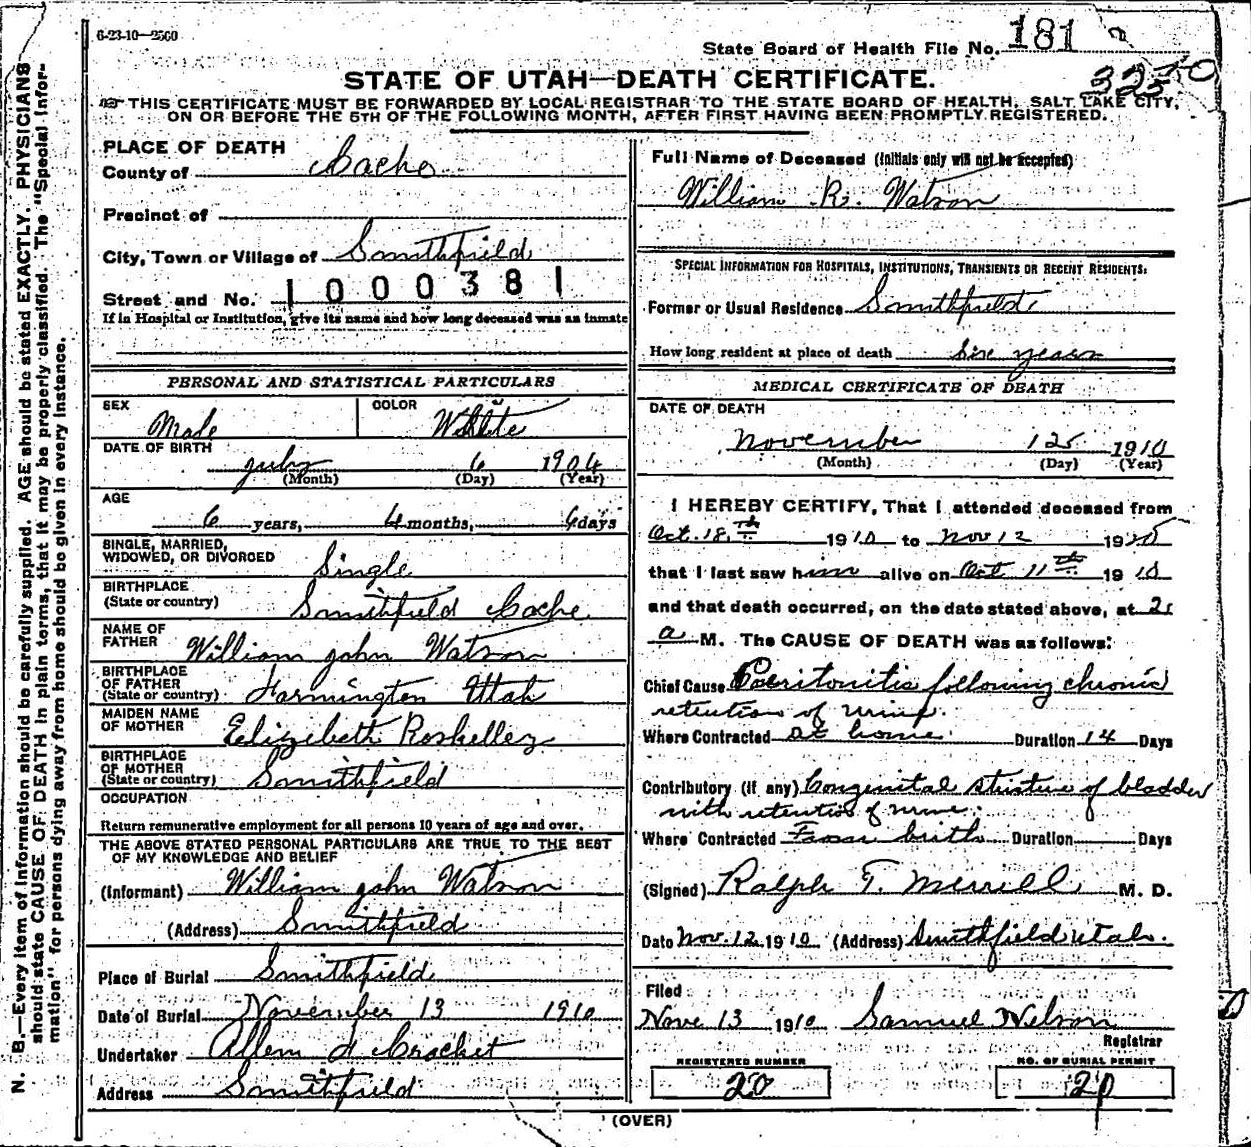 6-23-10-2500
State Board of Health File No. 181
325
STATE OF UTAH—DEATH CERTIFICATE.
THIS CERTIFICATE MUST BE FORWARDED BY LOCAL REGISTRAR TO THE STATE BOARD OF HEALTH, SALT LAKE CITY,
ON OR BEFORE THE 5TH OF THE FOLLOWING MONTH, AFTER FIRST HAVING BEEN PROMPTLY REGISTERED.
N. B.—Every item of information should be carefully supplied. AGE should be stated EXACTLY. PHYSICIANS
should state CAUSE OF DEATH in plain terms, that it may be properly classified. The "Special Infor-
mation" for persons dying away from home should be given in every instance.
PLACE OF DEATH
County of Cache
Precinct of
City, Town or Village of Smithfield
Street and No. 1000381
If in Hospital or Institution, give its name and how long deceased was an inmate
PERSONAL AND STATISTICAL PARTICULARS
SEX COLOR
Male White
DATE OF BIRTH
July 6 1904
(Month) (Day) (Year)
AGE
6 years, 4 months, 6 days
SINGLE, MARRIED,
WIDOWED, OR DIVORCED Single
BIRTHPLACE
(State or country) Smithfield Cache
NAME OF
FATHER William John Watson
BIRTHPLACE
OF FATHER
(State or country) Farmington Utah
MAIDEN NAME
OF MOTHER Elizibeth Roskelley
BIRTHPLACE
OF MOTHER
(State or country) Smithfield
OCCUPATION
Return remunerative employment for all persons 10 years of age and over.
THE ABOVE STATED PERSONAL PARTICULARS ARE TRUE TO THE BEST
OF MY KNOWLEDGE AND BELIEF
(Informant) William John Watson
(Address) Smithfield
Place of Burial Smithfield
Date of Burial November 13 1910
Undertaker Allem d Crocket
Address Smithfield
Full Name of Deceased (Initials only will not be accepted)
William R. Watson
SPECIAL INFORMATION FOR HOSPITALS, INSTITUTIONS, TRANSIENTS OR RECENT RESIDENTS:
Former or Usual Residence Smithfield
How long resident at place of death Six years
MEDICAL CERTIFICATE OF DEATH
DATE OF DEATH
November 12 1910
(Month) (Day) (Year)
I HEREBY CERTIFY, That I attended deceased from
Oct. 18th 1910 to Nov 12 1910
that I last saw him alive on Oct 11th 1910
and that death occurred, on the date stated above, at 2
a M. The CAUSE OF DEATH was as follows:
Chief Cause Peritonitis following chronic
retention of urine.
Where Contracted at home. Duration 14 Days
Contributory (if any) Congenital stricture of bladder
with retention of urine.
Where Contracted From birth Duration Days
(Signed) Ralph T. Merrill M. D.
Date Nov. 12 1910 (Address) Smithfield Utah.
Filed
Nove 13 1910 Samuel Nelson
Registrar
REGISTERED NUMBER NO. OF BURIAL PERMIT
20 20
(OVER)